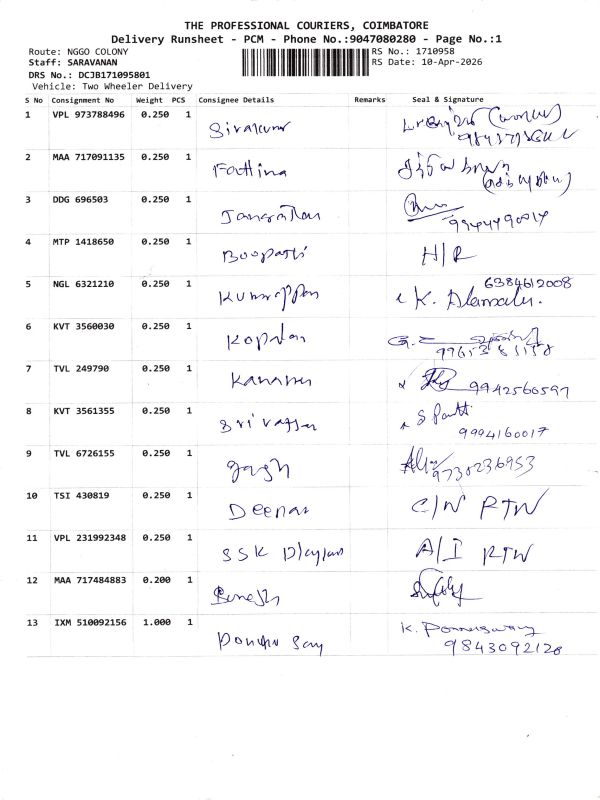 THE PROFESSIONAL COURIERS, COIMBATORE
Delivery Runsheet - PCM - Phone No.:9047080280 - Page No.:1
Route: NGGO COLONY
RS No.: 1710958
Staff: SARAVANAN
RS Date: 10-Apr-2026
DRS No.: DCJB171095801
Vehicle: Two Wheeler Delivery
S No Consignment No Weight PCS Consignee Details Remarks Seal & Signature
1 VPL 973788496 0.250 1 Sivakumar
2 MAA 717091135 0.250 1 Fathima
3 DDG 696503 0.250 1
4 MTP 1418650 0.250 1 Boopathi H/R
5 NGL 6321210 0.250 1 6384612008
K.
6 KVT 3560030 0.250 1
7 TVL 249790 0.250 1 Kannan 9942560597
8 KVT 3561355 0.250 1 S
9994160017
9 TVL 6726155 0.250 1 9730236953
10 TSI 430819 0.250 1 Deenan C/N RTN
11 VPL 231992348 0.250 1 SSK A/I RTN
12 MAA 717484883 0.200 1
13 IXM 510092156 1.000 1 K. Ponnuswamy
9843092120